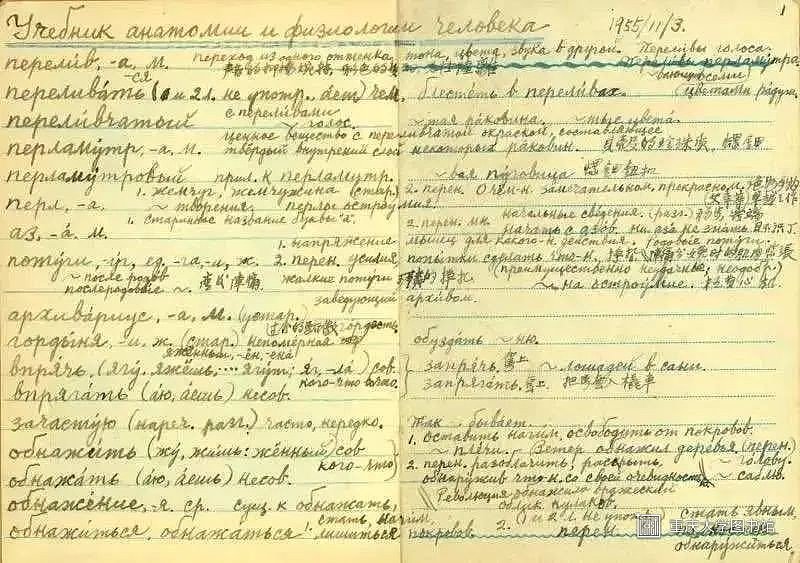 Учебник анатомии и физиологии человека 1955/11/3. 1
перели́в, -а, м. переход из одного оттенка тона, цвета, звука в другой. Перели́вы голоса.
Перели́вы перламутра.
перелива́ть -ся (1 и 2 л. не употр., а́ет) чем, блестеть в переливах. (цветами радуги.
перели́вчатый с перели́вами ~ голос. ~ тая ра́ковина. ~ тые цвета́.
перламу́тр, -а, м. ценное вещество с перели́вчатой окраской, составляющее
твёрдый внутрений слой некоторых раковин.
перламу́тровый прил. к перламутр. ~ вая пу́говица
перл, -а. 1. жемчуг, жемчужина (стар.) 2. перен. О чём-н. замечательном, прекрасном.
~ творения. перлое остроумия!
аз, -а́, м. 1. старинное название буквы "а". 2. перен. мн. начальные сведения. (разг.)
начать с азов. ни аза не знать
поту́ги, -у́г, ед. -га, -и, ж. 1. напряжение мышец для какого-н. действия. Родовые поту́ги.
2. перен. усилия попытки сделать что-н.
(преимущественно неудачные; неодобр.)
~ после родов
послеродовые ~. 產後陣痛 жалкие потуги ~ на остроумие.
архива́риус, -а, м. (устар.) заведующий архи́вом.
горды́ня, -и, ж. (стар.) непомерная гордость. обуздать ~ню.
впрячь (ягу́, яжёшь, ···· ягу́т; я́г, -ла́) яжённый, -ён, -ена́ сов. кого-что во что. запря́чь, 套上 ~ лошадей в сани.
впряга́ть (а́ю, а́ешь) несов. запряга́ть. 套上
зачасту́ю (нареч. разг.) часто, нередко. Так ~ бывает.
обнажи́ть (жу́, жи́шь: жённый) сов кого-что 1. оставить наги́м, освободить от покровов.
~ плечи. Ветер обнажил деревья (перен.)
обнажа́ть (а́ю, а́ешь) несов. 2. перен. разоблачить, раскрыть, ~ голову.
обнаружив что-н. со своей очевидностью ~ саблю.
обнаже́ние, -я, ср. сущ. к обнажать, Революция обнажила вражеский
облик кулаков.
обнажи́ться, обнажа́ться 1. стать наги́м, лишиться покровов. 2. (1 и 2 л. не употр.) перен. стать явным,
обнару́житься.
重庆大学图书馆